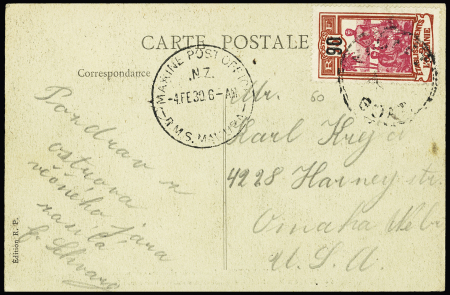 CARTE POSTALE
Correspondance
MARINE POST OFFICE
N.Z.
-4 FE 30. 6-AM
R.M.S. MAKURA
R F
90
60
Mr.
Karl
4228 Harney str.
Omaha Nebr
U. S. A.
Pozdrav z
ostrova
věčného jara
zasílá
Edition R. P.